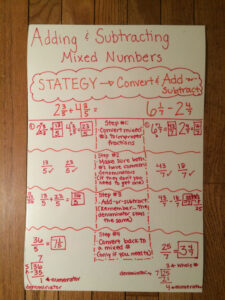 Adding & Subtracting
Mixed Numbers
STATEGY → Convert & Add -or- Subtract
2 3/5 + 4 3/5 =
6 1/7 - 2 4/7
Step #1:
Convert mixed
#'s to improper
fractions
Step #2
Make sure both
#'s have common
denominators
(If they don't
need to get one)
13/5 ✓ 23/5 ✓
43/7 ✓ 18/7 ✓
Step #3
Add -or- subtract
(Remember... The
denominator stays
the same)
13/5 + 23/5 = 36/5
Step #4
Convert back to
a mixed #
(Only if you need to)
36/5 = 7 1/5
25/7 = 3 4/7
numerator
denominator
whole #
denominator
numerator